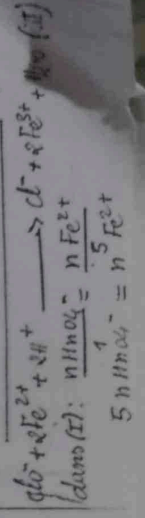 ClO⁻ + 2Fe²⁺ + 2H⁺ → Cl⁻ + 2Fe³⁺ + H₂O (II)
dans (I): nMnO₄⁻/1 = nFe²⁺/5
5 nMnO₄⁻ = n Fe²⁺